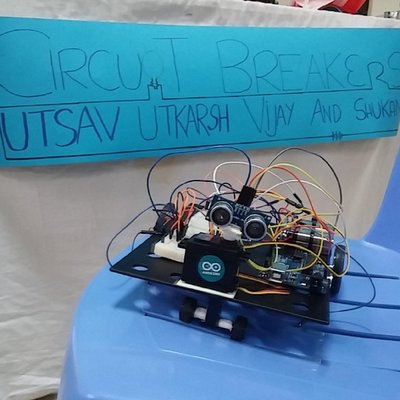 CIRCUIT BREAKERS
UTSAV UTKARSH VIJAY AND SHUKAN